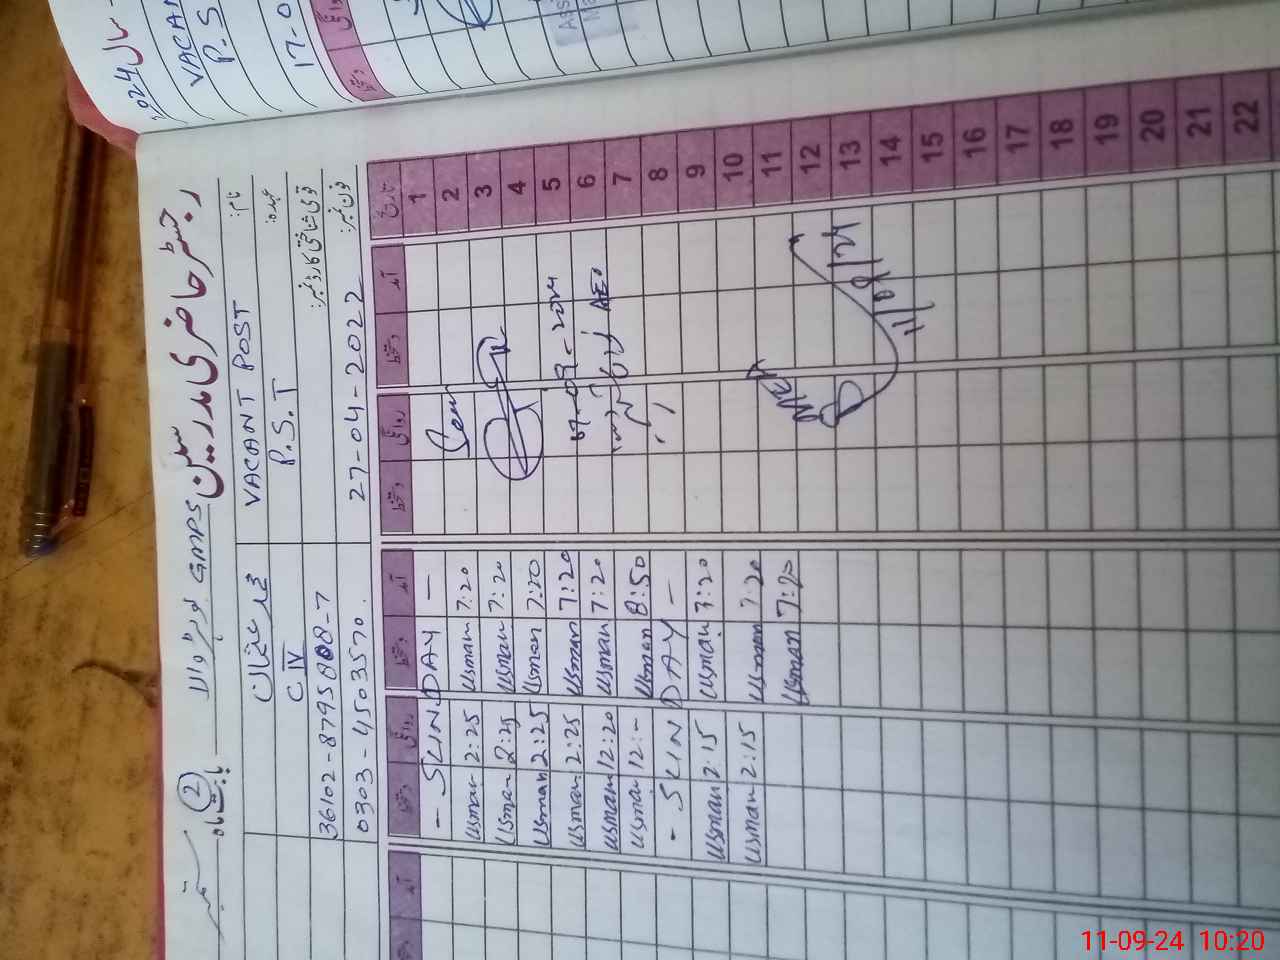 رجسٹر حاضری مدرسین
GMPS
بابت ماہ ستمبر (2)
سال 2024
VACAN
P. S
17-0
نام:
عہدہ:
قومی شناختی کارڈ نمبر:
فون نمبر:
VACANT POST
P.S.T
27-04-2022
محمد عثمان
C IV
0303-4503570.
تاریخ
آمد
دستخط
روانگی
دستخط
آمد
دستخط
روانگی
دستخط
آمد
1 - SUNDAY -
2 7:20 Usman 2:25 Usman
3 7:20 Usman 2:25 Usman
4 7:20 Usman 2:25 Usman
5 7:20 Usman 2:25 Usman
6 7:20 Usman 12:20 Usman
7 8:50 Usman 12:- Usman
8 - SUNDAY -
9 7:20 Usman 2:15 Usman
10 7:20 Usman 2:15 Usman
11 7:20 Usman
12
13
14
15
16
17
18
19
20
21
22
07-09-2024
AEO
MEA
11/09/24
11-09-24 10:20